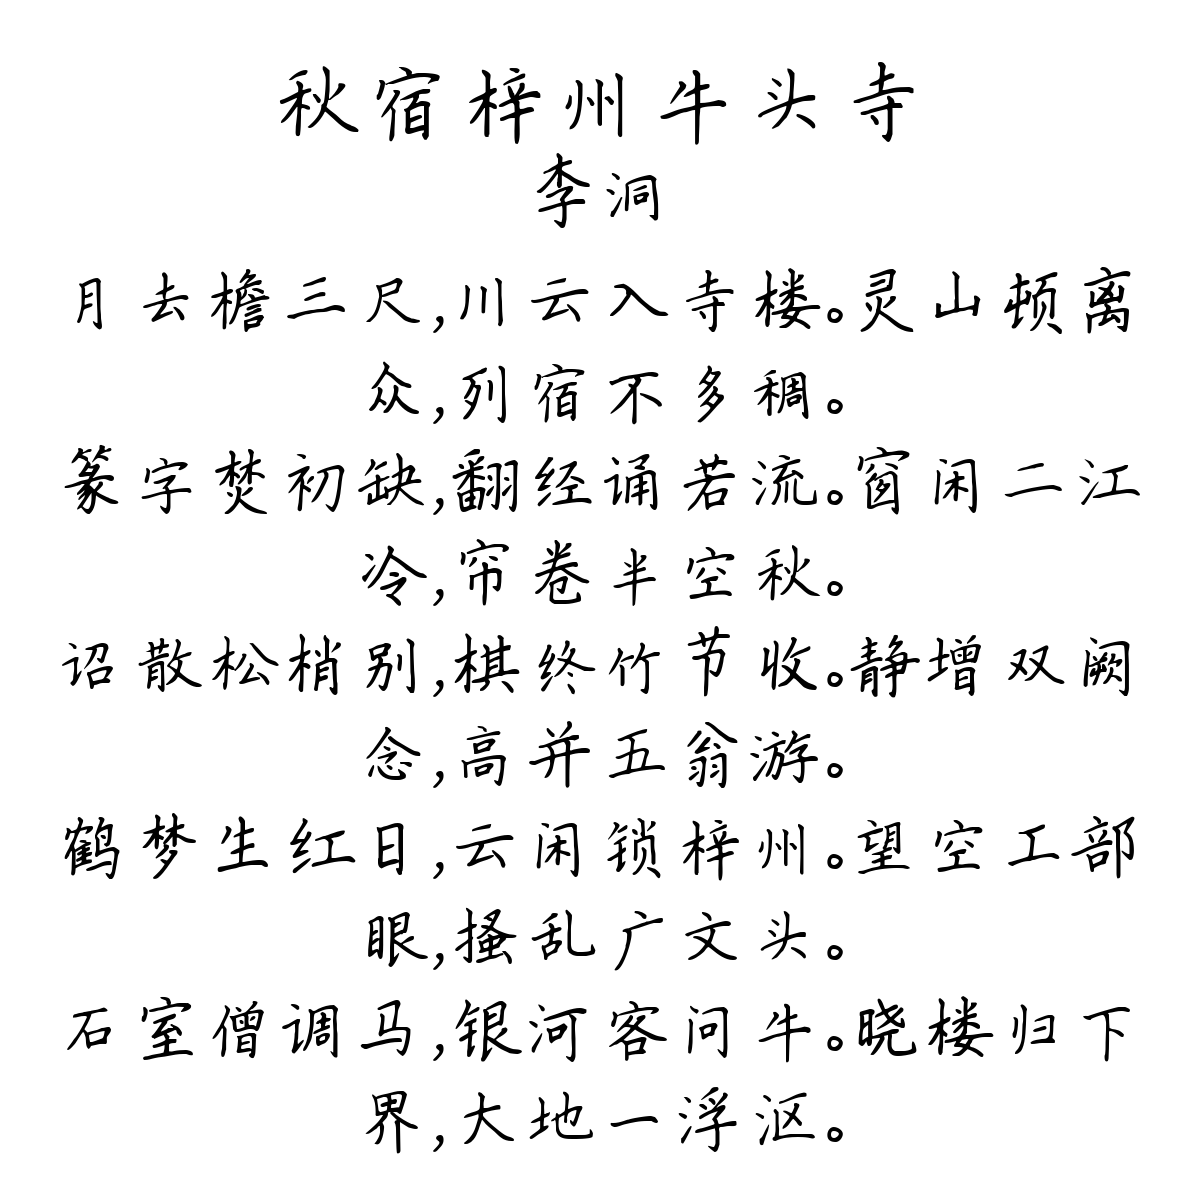 秋宿梓州牛头寺
李洞
月去檐三尺,川云入寺楼。灵山顿离
众,列宿不多稠。
篆字焚初缺,翻经诵若流。窗闲二江
冷,帘卷半空秋。
诏散松梢别,棋终竹节收。静增双阙
念,高并五翁游。
鹤梦生红日,云闲锁梓州。望空工部
眼,搔乱广文头。
石室僧调马,银河客问牛。晓楼归下
界,大地一浮沤。